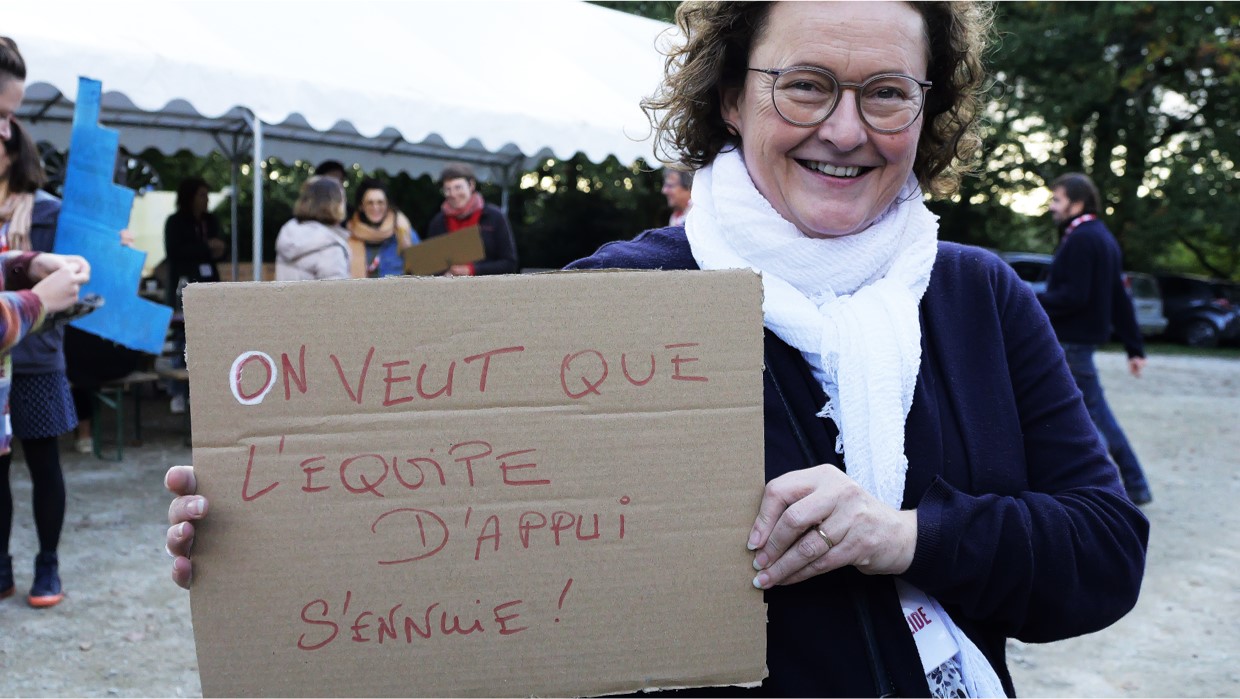 ON VEUT QUE
L'EQUIPE
D'APPUI
S'ENNUIE !